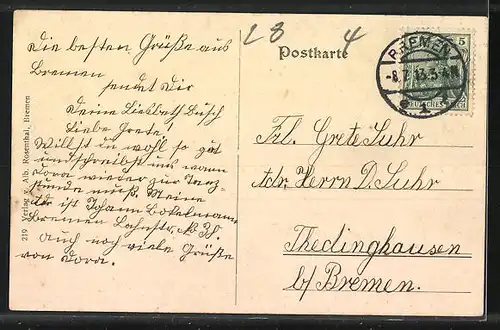 28
4
Postkarte
5
BREMEN
-8.7.13.5-6N
DEUTSCHES REICH
* 1
Die besten Grüße aus
Bremen
sendet Dir
Deine Liesbeth Busch
Liebe Grete!
Willst du wohl so gut
und schreibst uns wann
Dora wieder zur Tanz-
stunde muß. Meine
ist Johann Bokelmann
Bremen Lahnstr.
Auch noch viele Grüße
von Dora.
Frl. Grete Suhr
Adr. Herrn D. Suhr
Thedinghausen
b/ Bremen.
219 Verlag v. Alb. Rosenthal, Bremen